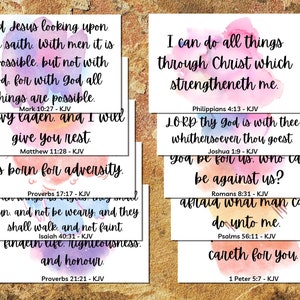 Jesus looking upon
saith, With men it is
possible, but not with
for with God all
are possible.
Mark 10:27 - KJV
laden, and I will
give you rest.
Matthew 11:28 - KJV
born for adversity.
Proverbs 17:17 - KJV
and not be weary; and they
shall walk, and not faint.
Isaiah 40:31 - KJV
findeth life, righteousness,
and honour.
Proverbs 21:21 - KJV
I can do all things
through Christ which
strengtheneth me.
Philippians 4:13 - KJV
LORD thy God is with thee
whithersoever thou goest.
Joshua 1:9 - KJV
God be for us, who can
be against us?
Romans 8:31 - KJV
afraid what man can
do unto me.
Psalms 56:11 - KJV
careth for you.
1 Peter 5:7 - KJV